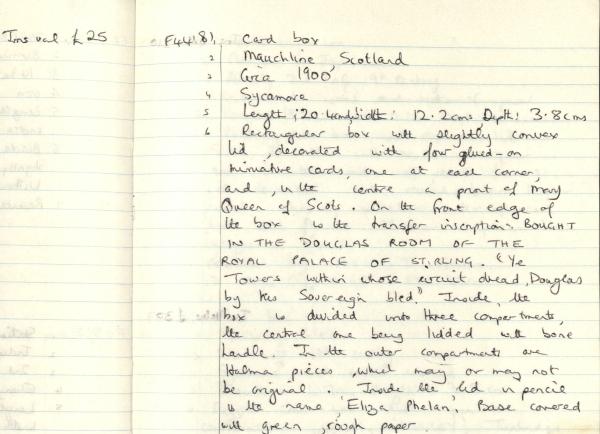 Ins val £25 F44(8) 1 Card box
2 Mauchline, Scotland
3 Circa 1900
4 Sycamore
5 Length: 20.4cms Width: 12.2cms Depth: 3.8cms
6 Rectangular box with slightly convex
lid, decorated with four glued-on
miniature cards, one at each corner,
and, in the centre a print of Mary
Queen of Scots. On the front edge of
the box is the transfer inscription: BOUGHT
IN THE DOUGLAS ROOM OF THE
ROYAL PALACE OF STIRLING. "Ye
Towers within whose circuit dread, Douglas
by his Sovereign bled." Inside, the
box is divided into three compartments,
the central one being lidded with bone
handle. In the outer compartments are
Halma pieces, which may or may not
be original. Inside the lid in pencil
is the name, 'Eliza Phelan'. Base covered
with green, rough paper.